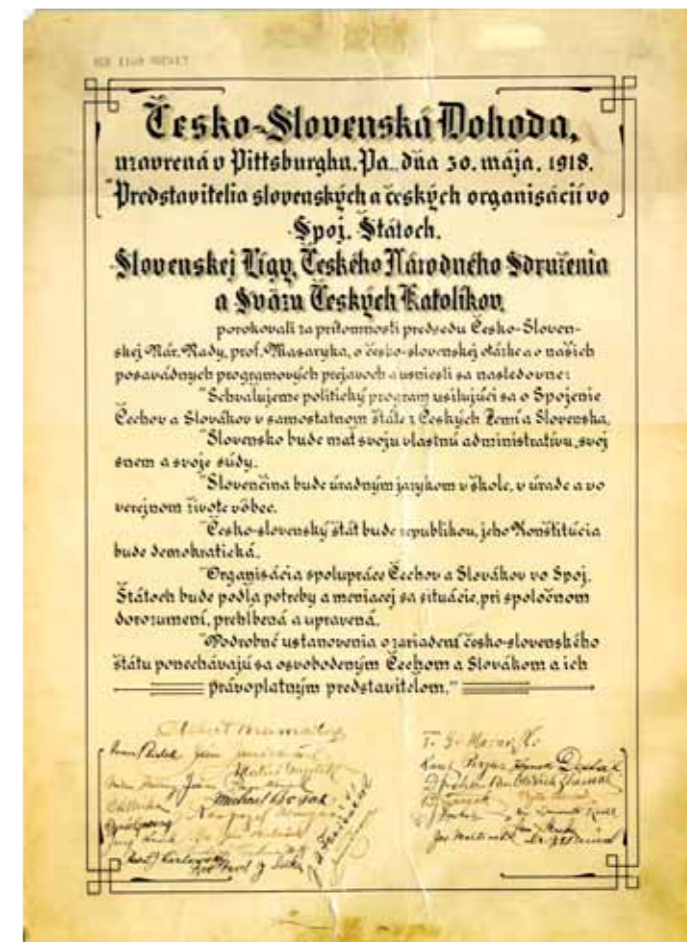 Česko-Slovenská Dohoda,
uzavrená v Pittsburghu, Pa., dňa 30. mája, 1918.
"Predstavitelia slovenských a českých organisácií vo
Spoj. Štátoch,
Slovenskej Ligy, Českého Národného Sdruženia
a Sväzu Českých Katolíkov,
porokovali za prítomnosti predsedu Česko-Sloven-
skej Nár. Rady, prof. Masaryka, o česko-slovenskej otázke a o našich
posavádnych programových prejavoch a usniesli sa nasledovne:
"Schvaľujeme politický program usilujúci sa o Spojenie
Čechov a Slovákov v samostatnom štáte z Českých Zemí a Slovenska.
"Slovensko bude mať svoju vlastnú administratívu, svoj
snem a svoje súdy.
"Slovenčina bude úradným jazykom v škole, v úrade a vo
verejnom živote vôbec.
"Česko-slovenský štát bude republikou, jeho Konštitúcia
bude demokratická.
"Organisácia spolupráce Čechov a Slovákov vo Spoj.
Štátoch bude podľa potreby a meniacej sa situácie, pri spoločnom
dorozumení, prehĺbená a upravená.
"Podrobné ustanovenia o zariadení česko-slovenského
štátu ponechávajú sa osvobodeným Čechom a Slovákom a ich
právoplatným predstaviteľom."
Albert Mamatey
T. G. Masaryk
Michael Bosak